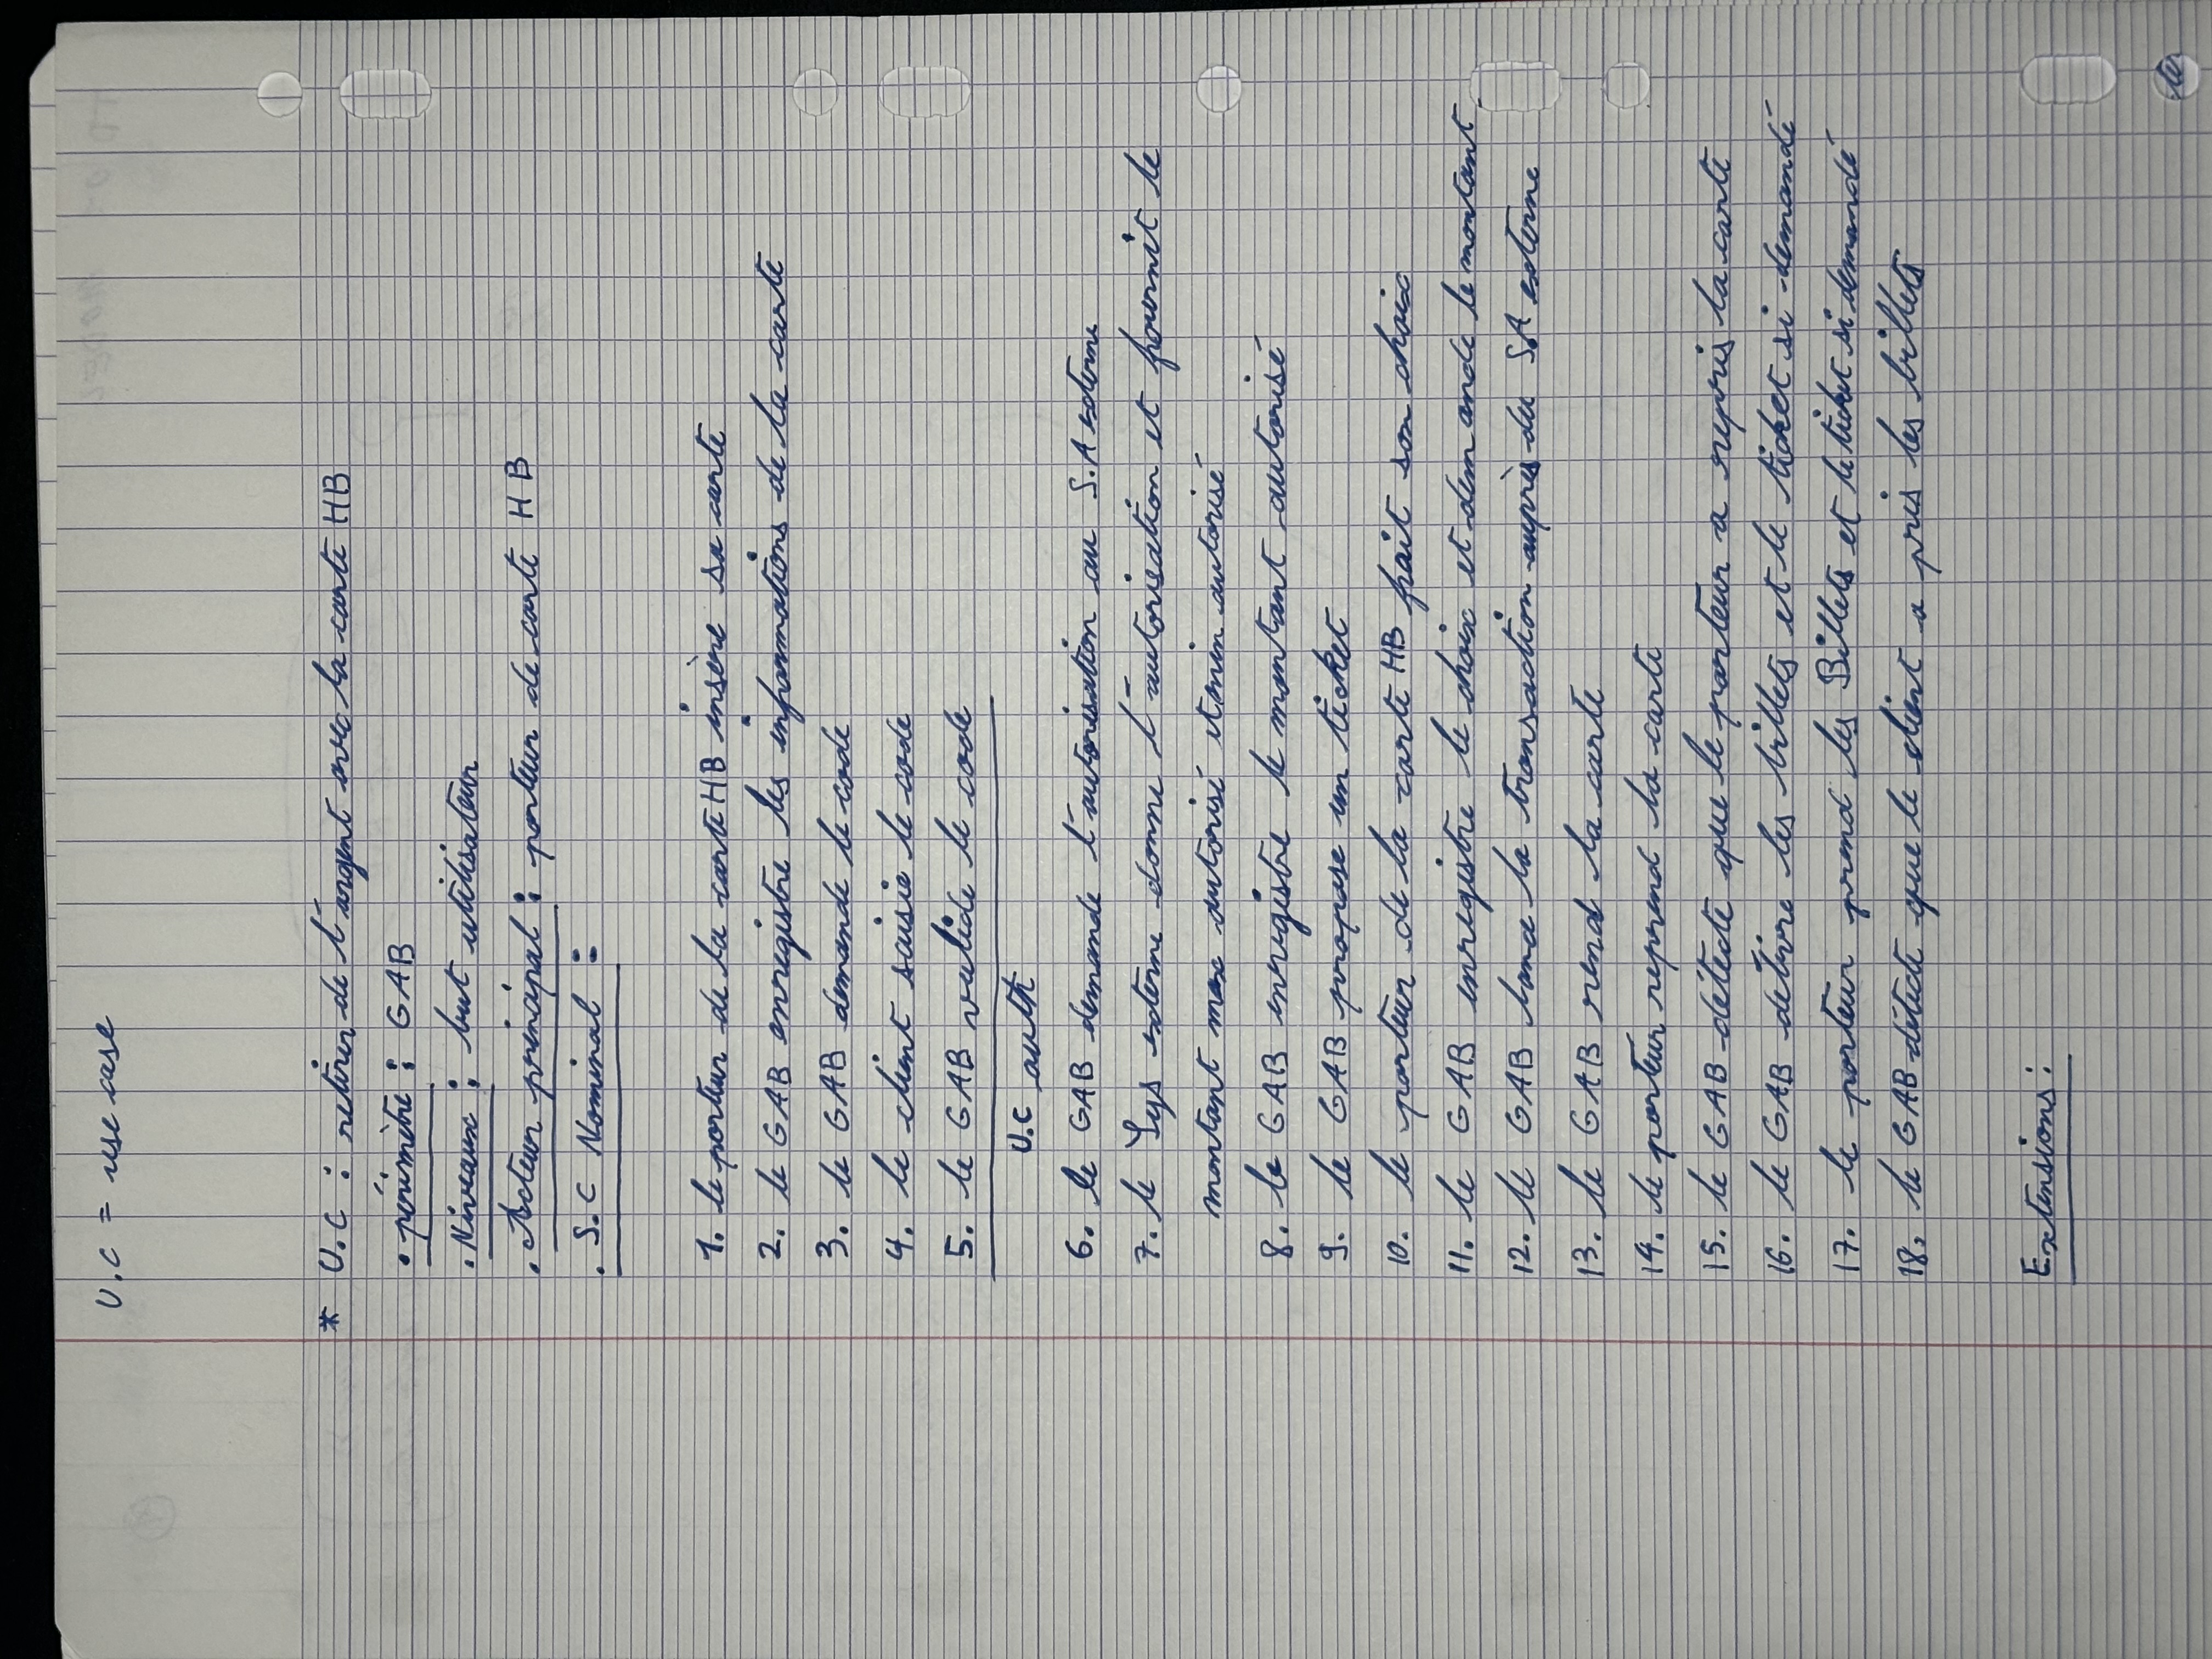 U.C = use case
* U.C : retirer de l'argent avec la carte HB
. périmètre : GAB
. Niveaux : but utilisateur
. Acteur principal : porteur de carte HB
. S.C Nominal :
1. le porteur de la carte HB insère sa carte
2. le GAB enregistre les informations de la carte
3. le GAB demande le code
4. le client saisie le code
5. le GAB valide le code
U.C auth
6. le GAB demande l'autorisation au S.A externe
7. le Sys externe donne l'autorisation et fournit le
montant max autorisé et min autorisé
8. le GAB enregistre le montant autorisé
9. le GAB propose un ticket
10. le porteur de la carte HB fait son choix
11. le GAB enregistre le choix et demande le montant
12. le GAB lance la transaction auprès du S.A externe
13. le GAB rend la carte
14. le porteur reprend la carte
15. le GAB détecte que le porteur a repris la carte
16. le GAB délivre les billets et le ticket si demandé
17. le porteur prend les Billets et le ticket si demandé
18. le GAB détecte que le client a pris les billets
Extensions :